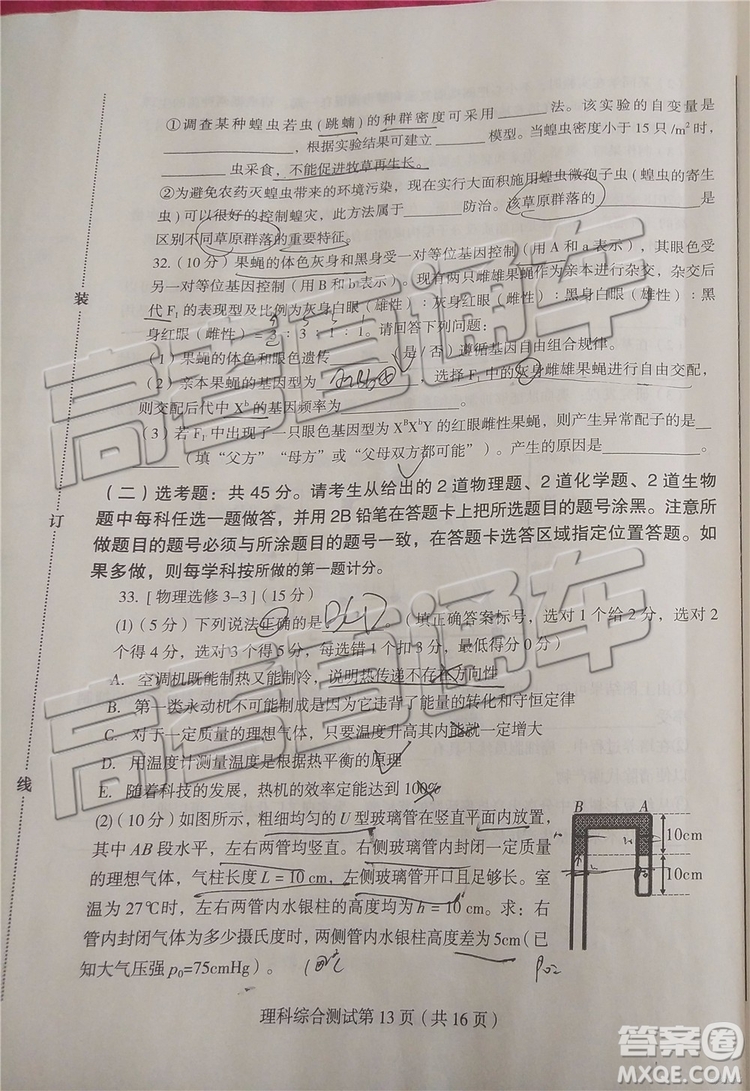 ①调查某种蝗虫若虫(跳蝻)的种群密度可采用______法。该实验的自变量是
____________,根据实验结果可建立______模型。当蝗虫密度小于15只/m²时,
______虫采食,不能促进牧草再生长。
②为避免农药灭蝗虫带来的环境污染,现在实行大面积施用蝗虫微孢子虫(蝗虫的寄生
虫)可以很好的控制蝗灾,此方法属于______防治。该草原群落的____________是
区别不同草原群落的重要特征。
32.(10分)果蝇的体色灰身和黑身受一对等位基因控制(用A和a表示),其眼色受
另一对等位基因控制(用B和b表示)。现有两只雌雄果蝇作为亲本进行杂交,杂交后
代F₁的表现型及比例为灰身白眼(雄性):灰身红眼(雌性):黑身白眼(雄性):黑
身红眼(雌性)=3:3:1:1。请回答下列问题:
(1)果蝇的体色和眼色遗传______(是/否)遵循基因自由组合规律。
(2)亲本果蝇的基因型为____________,选择F₁中的灰身雌雄果蝇进行自由交配,
则交配后代中Xᵇ的基因频率为____________。
(3)若F₁中出现了一只眼色基因型为XᴮXᵇY的红眼雌性果蝇,则产生异常配子的是____
______(填“父方”“母方”或“父母双方都可能”)。产生的原因是____________。
(二)选考题:共45分。请考生从给出的2道物理题、2道化学题、2道生物
题中每科任选一题做答,并用2B铅笔在答题卡上把所选题目的题号涂黑。注意所
做题目的题号必须与所涂题目的题号一致,在答题卡选答区域指定位置答题。如
果多做,则每学科按所做的第一题计分。
33.[物理选修3-3](15分)
(1)(5分)下列说法正确的是 BCD (填正确答案标号,选对1个给2分,选对2
个得4分,选对3个得5分,每选错1个扣3分,最低得0分)
A. 空调机既能制热又能制冷,说明热传递不存在方向性
B. 第一类永动机不可能制成是因为它违背了能量的转化和守恒定律
C. 对于一定质量的理想气体,只要温度升高其内能就一定增大
D. 用温度计测量温度是根据热平衡的原理
E. 随着科技的发展,热机的效率定能达到100%
(2)(10分)如图所示,粗细均匀的U型玻璃管在竖直平面内放置,
其中AB段水平,左右两管均竖直。右侧玻璃管内封闭一定质量
的理想气体,气柱长度L=10 cm,左侧玻璃管开口且足够长。室
温为27℃时,左右两管内水银柱的高度均为h=10 cm。求:右
管内封闭气体为多少摄氏度时,两侧管内水银柱高度差为5cm(已
知大气压强p₀=75cmHg)。
B A
10cm
10cm
理科综合测试第13页(共16页)
装
订
线
高考直通车
高考直通车
答案圈
MXQE.COM